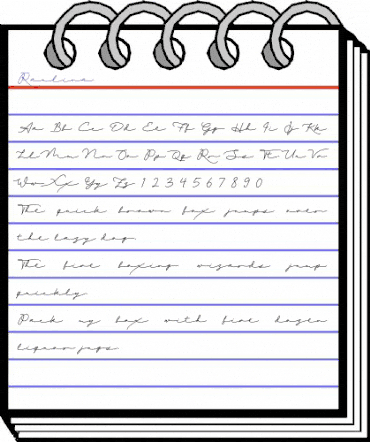 Raulina
Aa Bb Cc Dd Ee Ff Gg Hh Ii Jj Kk
Ll Mm Nn Oo Pp Qq Rr Ss Tt Uu Vv
Ww Xx Yy Zz 1 2 3 4 5 6 7 8 9 0
The quick brown fox jumps over
the lazy dog
The five boxing wizards jump
quickly
Pack my box with five dozen
liquor jugs